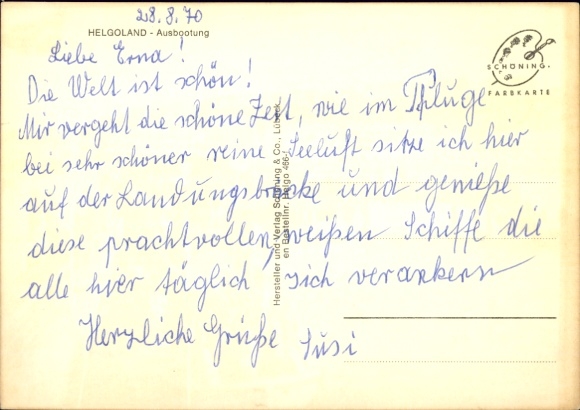 28.8.70
HELGOLAND - Ausbootung
Liebe Erna!
Die Welt ist schön!
Mir vergeht die schöne Zeit, wie im Pfluge
bei sehr schöner reine Seeluft sitze ich hier
auf der Landungsbrücke und genieße
diese prachtvollen, weißen Schiffe die
alle hier täglich, sich verankern
Herzliche Grüße Susi
SCHÖNING
FARBKARTE
Hersteller und Verlag Schöning & Co., Lübeck
Bestellnr. Helgo 466